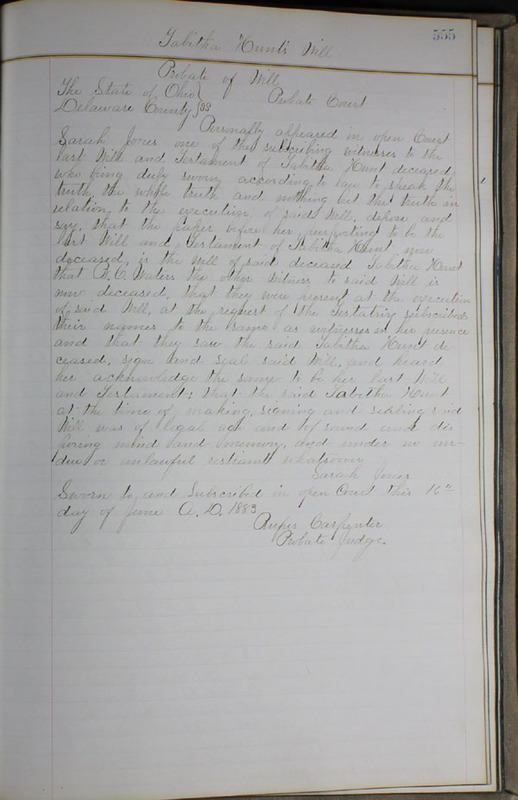 555
Tabitha Hunt's Will
Probate of Will
The State of Ohio } Probate Court
Delaware County } ss
Personally appeared in open Court
Sarah Jones one of the subscribing witnesses to the
last Will and Testament of Tabitha Hunt deceased,
who being duly sworn according to law to speak the
truth, the whole truth and nothing but the truth in
relation to the execution of said Will, depose and
say, that the paper before her, purporting to be the
last Will and Testament of Tabitha Hunt, now
deceased, is the Will of said deceased Tabitha Hunt
that B. C. Waters the other Witness to said Will is
now deceased, that they were present at the execution
of said Will, at the request of the testatrix subscribed
their names to the same as witnesses in her presence
and that they saw the said Tabitha Hunt de
ceased, sign and seal said Will, and heard
her acknowledge the same to be her last Will
and Testament; that the said Tabitha Hunt
at the time of making, signing and sealing said
Will was of legal age and of sound and dis
posing mind and memory, and under no un-
due or unlawful restraint whatsoever
Sarah Jones
Sworn to and Subscribed in open Court this 16th
day of June A. D. 1883
Rufus Carpenter
Probate Judge